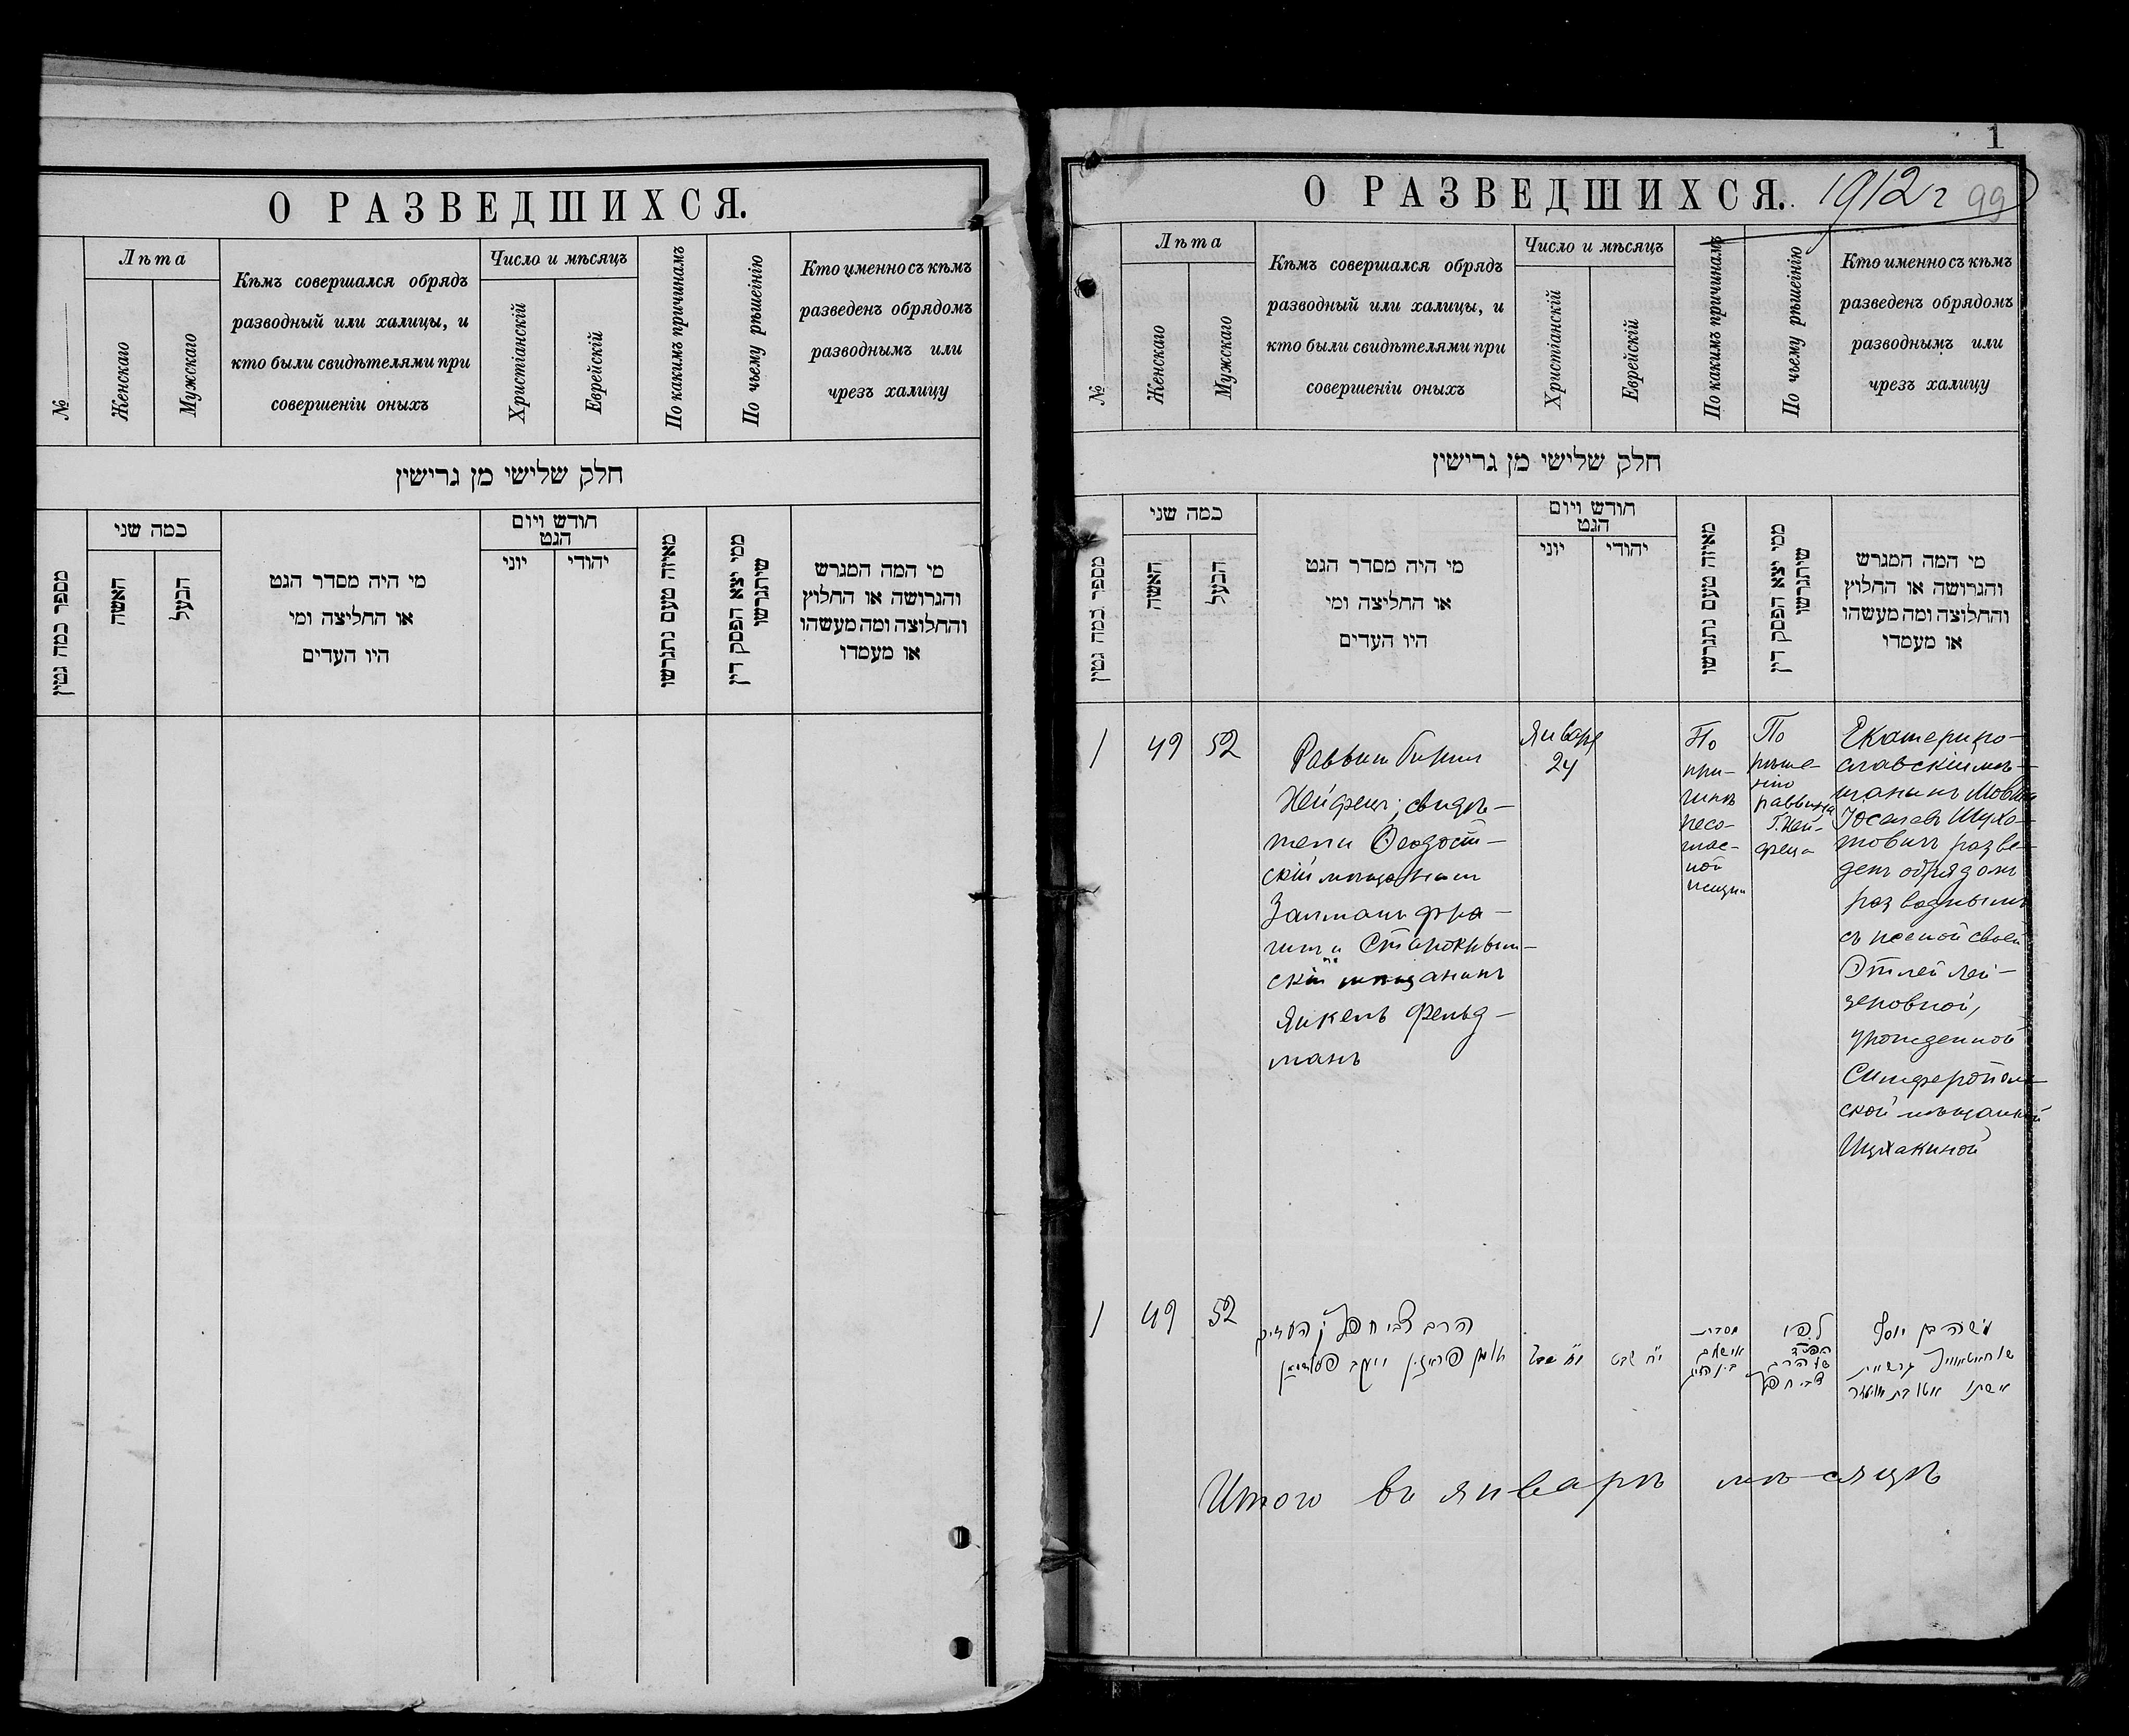 О РАЗВЕДШИХСЯ.
№
Лѣта
Женскаго
Мужскаго
Кѣмъ совершался обрядъ
разводный или халицы, и
кто были свидѣтелями при
совершеніи оныхъ
Число и мѣсяцъ
Христіанскій
Еврейскій
По какимъ причинамъ
По чьему рѣшеінію
Кто именно съ кѣмъ
разведенъ обрядомъ
разводнымъ или
чрезъ халицу
חלק שלישי מן גרישין
מספר כמה גטין
כמה שני
האשה
הבעל
מי היה מסדר הגט
או החליצה ומי
היו העדים
חודש ויום
הגט
יוני
יהודי
מאיזה טעם נתגרשו
ממי יצא הפסק דין
שיתגרשו
מי המה המגרש
והגרושה או החלוץ
והחלוצה ומה מעשהו
או מעמדו
1
О РАЗВЕДШИХСЯ. 1912 г 99
№
Лѣта
Женскаго
Мужскаго
Кѣмъ совершался обрядъ
разводный или халицы, и
кто были свидѣтелями при
совершеніи оныхъ
Число и мѣсяцъ
Христіанскій
Еврейскій
По какимъ причинамъ
По чьему рѣшеінію
Кто именно съ кѣмъ
разведенъ обрядомъ
разводнымъ или
чрезъ халицу
חלק שלישי מן גרישין
מספר כמה גטין
כמה שני
האשה
הבעל
מי היה מסדר הגט
או החליצה ומי
היו העדים
חודש ויום
הגט
יוני
יהודי
מאיזה טעם נתגרשו
ממי יצא הפסק דין
שיתגרשו
מי המה המגרש
והגרושה או החלוץ
והחלוצה ומה מעשהו
או מעמדו
1
49
52
Раввин
Нейфецъ; свидѣ-
тели Ѳеодосій-
скій мѣщанинъ
Залманъ
и Старокрым-
скій мѣщанинъ
Янкель Фельд-
манъ
Января
24
По
при-
чинѣ
несо-
глас-
ной
жизни
По
рѣше-
нію
раввина
Г. Ней-
феца
Екатерино-
славскій мѣ-
щанинъ Мовша
Іоселевъ Шухо-
товичъ разве-
денъ обрядомъ
разводнымъ
съ женой своей
Этлей Лей-
зеровной,
урожденной
Симферополь-
ской мѣщанкой
Ицхакиной
1
49
52
הרב צבי חפץ העדים
זלמן ויעקב פעלדמאן
י״ח שבט
של הרב
צבי חפץ
משה בן יוסף
גרש את
אשתו
Итого въ январѣ мѣсяцѣ